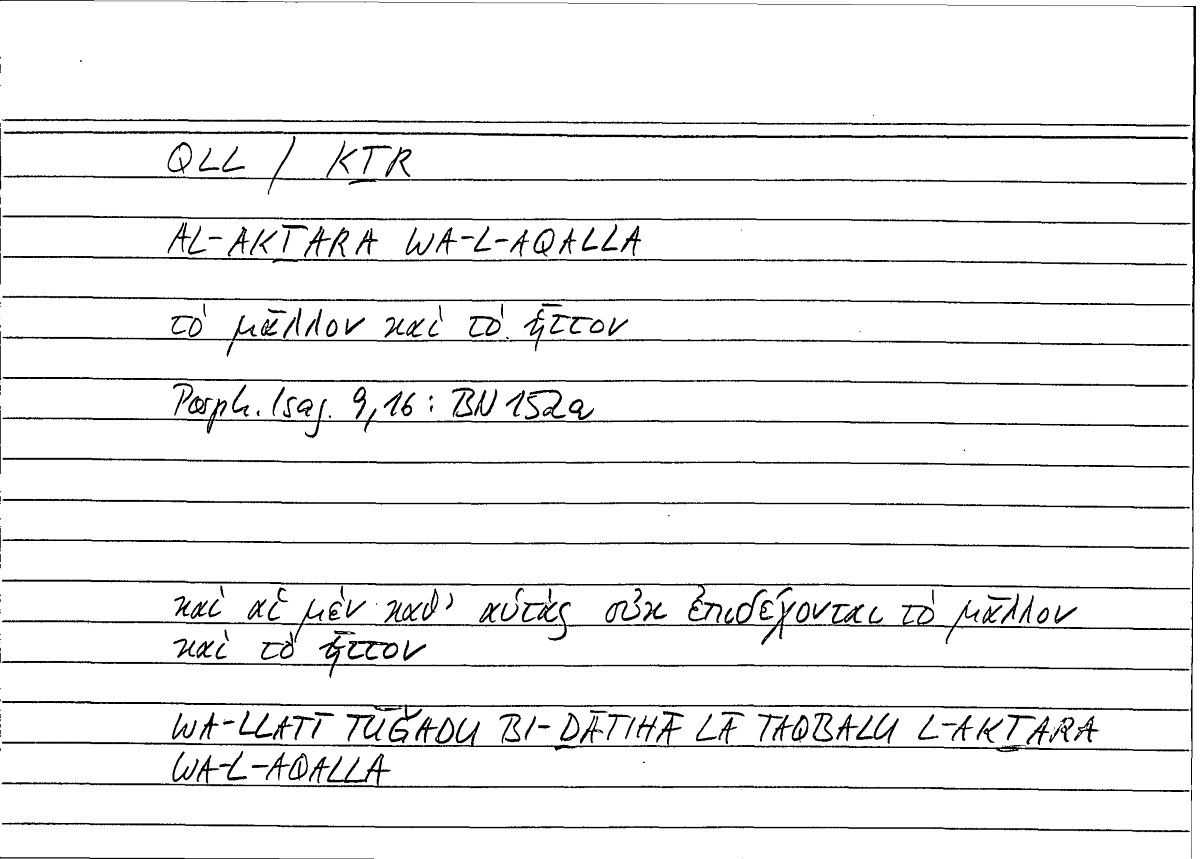 QLL / KṮR
AL-AKṮARA WA-L-AQALLA
τὸ μᾶλλον καὶ τὸ ἧττον
Porph. Isag. 9,16 : BN 152a
καὶ αἱ μὲν καθ’ αὑτὰς οὐκ ἐπιδέχονται τὸ μᾶλλον
καὶ τὸ ἧττον
WA-LLATĪ TŪǦADU BI-ḎĀTIHĀ LĀ TAQBALU L-AKṮARA
WA-L-AQALLA